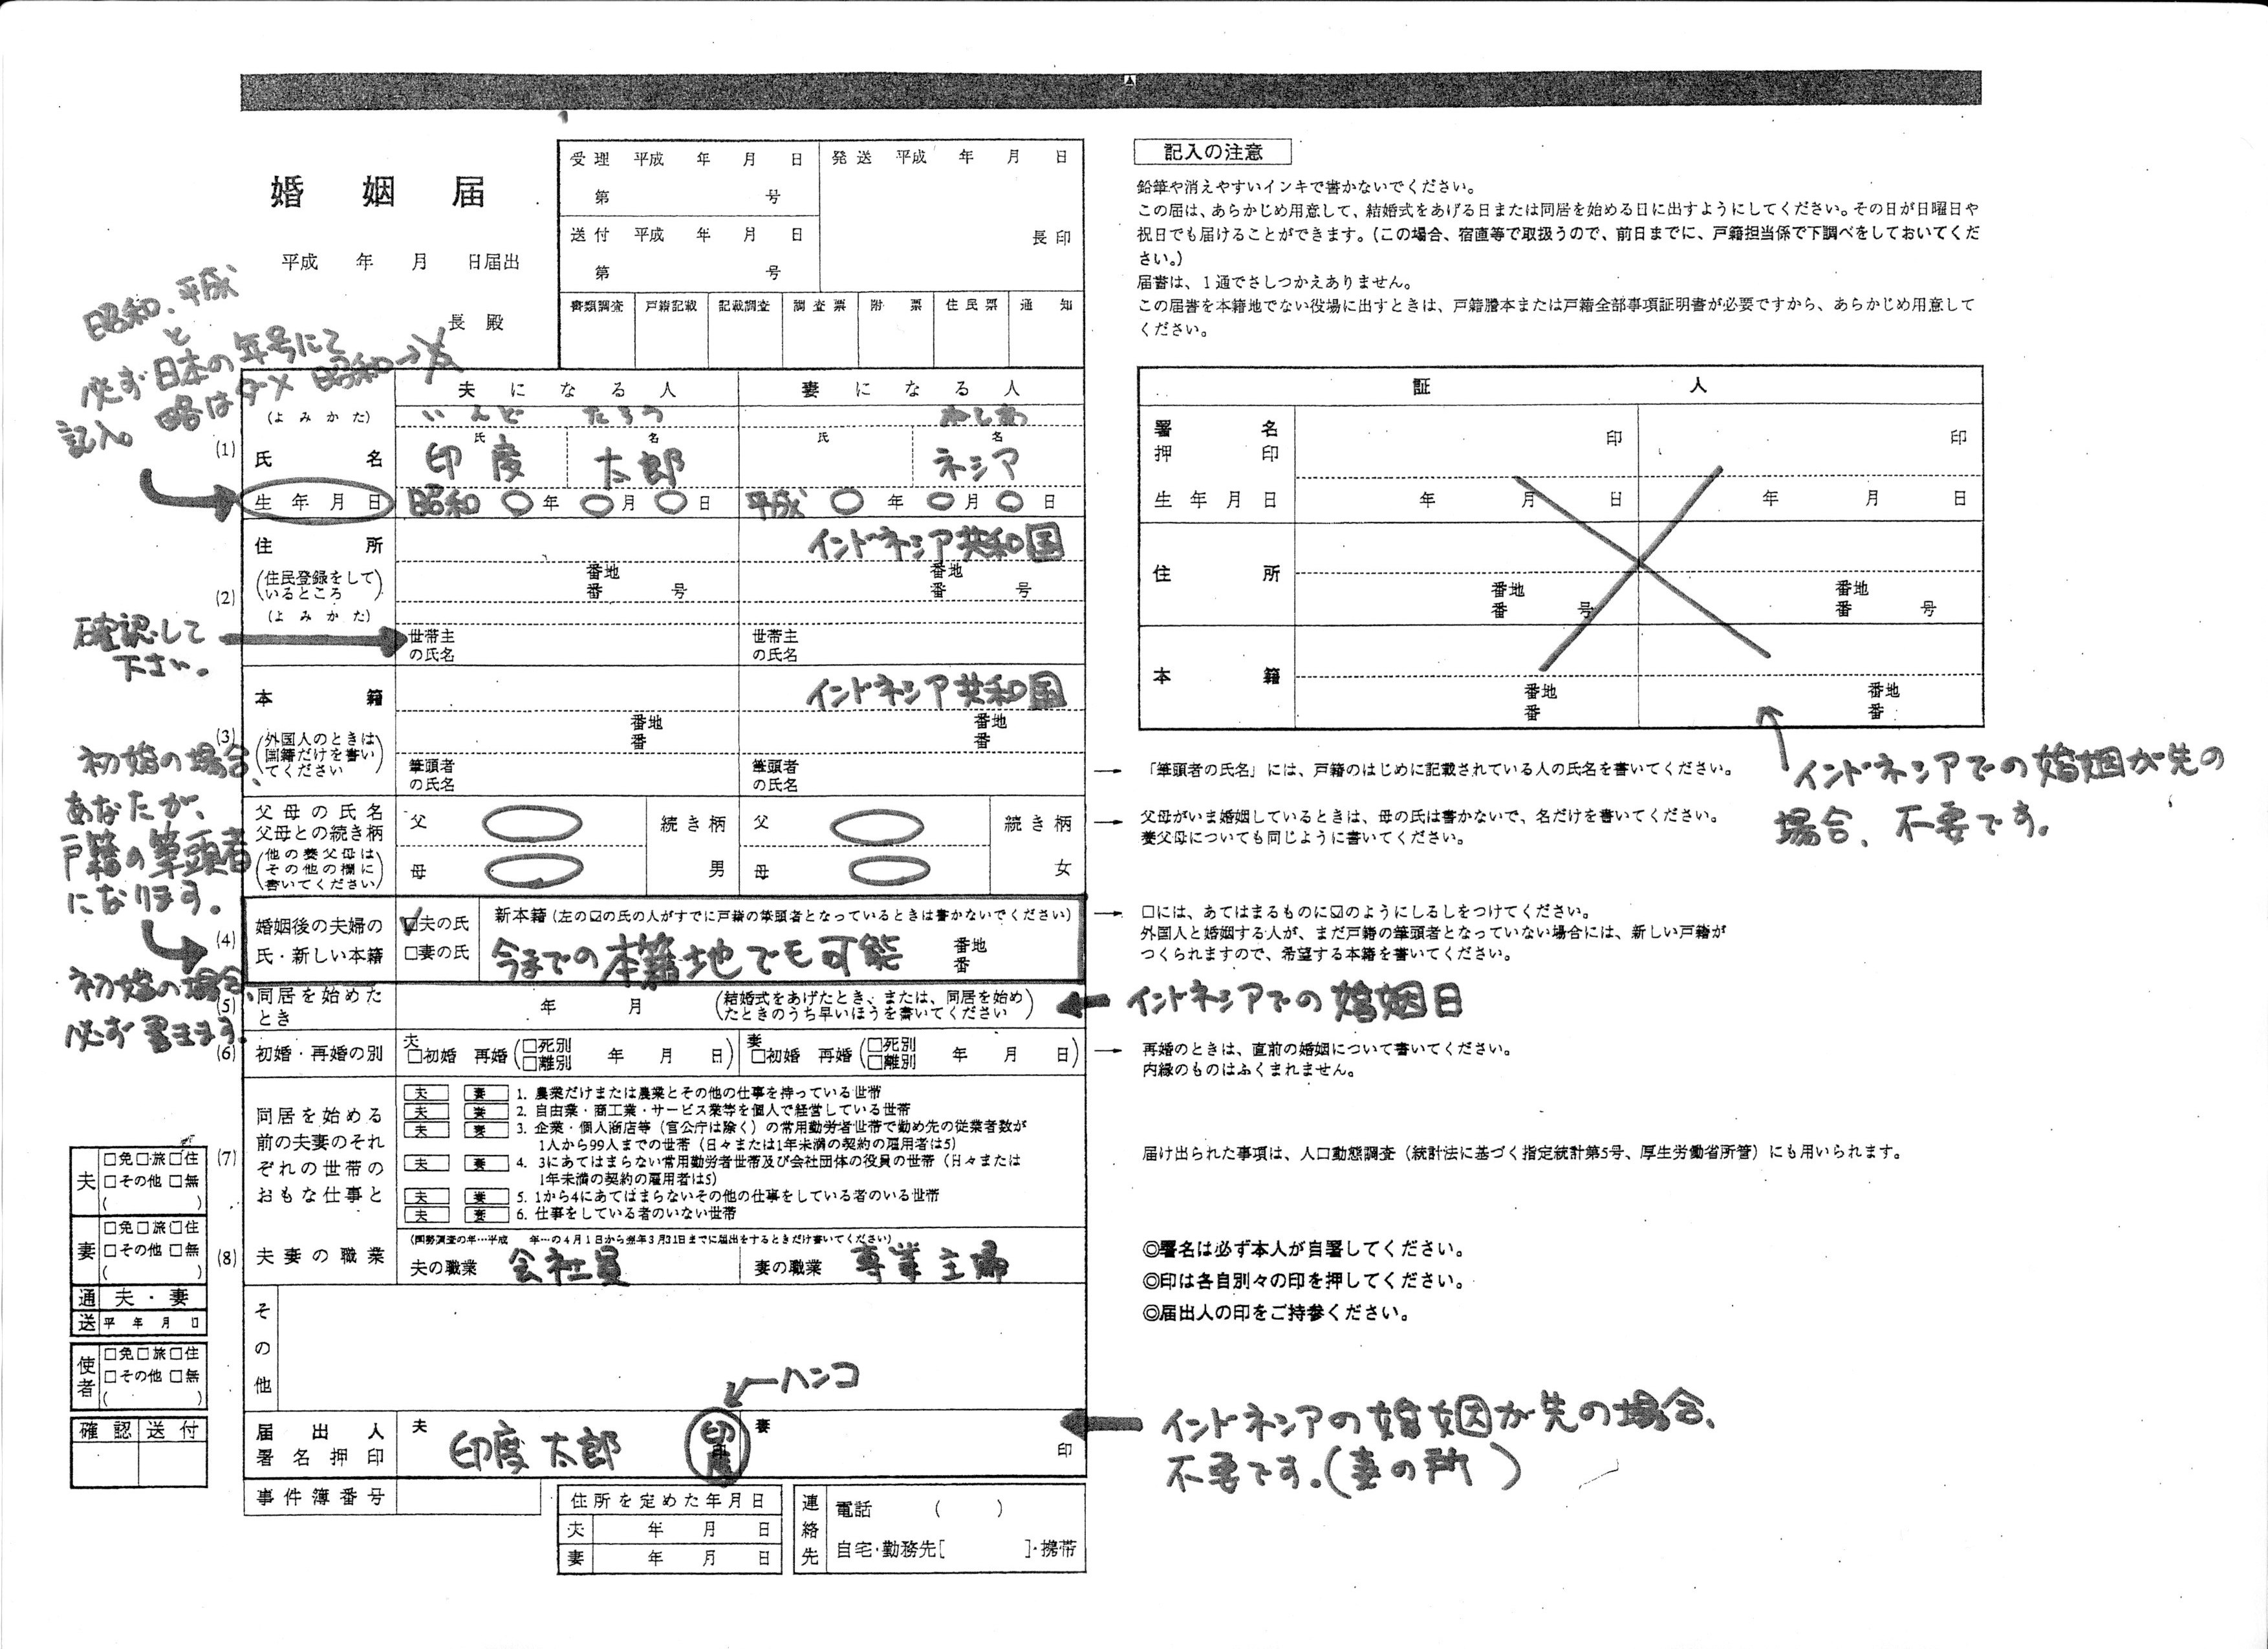 婚姻届
平成 年 月 日届出
長殿
受理 平成 年 月 日
第 号
送付 平成 年 月 日
第 号
発送 平成 年 月 日
長印
書類調査 戸籍記載 記載調査 調査票 附票 住民票 通知
昭和、平成
と
必ず日本の年号にて
記入。 略はダメ 昭和→
夫になる人 妻になる人
(よみかた) いんど たろう ねしあ
(1) 氏名 氏 名 氏 名
印度 太郎 ネシア
生年月日 昭和 ○年 ○月 ○日 平成 ○年 ○月 ○日
(2) 住所 インドネシア共和国
(住民登録をしているところ)
番地 番 号 番地 番 号
(よみかた)
確認して
下さい。
世帯主の氏名 世帯主の氏名
(3) 本籍 インドネシア共和国
(外国人のときは国籍だけを書いてください)
番地 番 番地 番
筆頭者の氏名 筆頭者の氏名
父母の氏名
父母との続き柄
(他の養父母はその他の欄に書いてください)
父 続き柄 父 続き柄
母 男 母 女
初婚の場合、
あなたが、
戸籍の筆頭者
になります。
(4) 婚姻後の夫婦の氏・新しい本籍
☑夫の氏
□妻の氏
新本籍(左の☑の氏の人がすでに戸籍の筆頭者となっているときは書かないでください)
今までの本籍地でも可能 番地 番
初婚の場合、
必ず書きます。
(5) 同居を始めたとき 年 月 (結婚式をあげたとき、または、同居を始めたときのうち早いほうを書いてください)
インドネシアでの婚姻日
(6) 初婚・再婚の別
夫 □初婚 再婚(□死別 □離別 年 月 日)
妻 □初婚 再婚(□死別 □離別 年 月 日)
(7) 同居を始める
前の夫妻のそれ
ぞれの世帯の
おもな仕事と
夫 妻 1. 農業だけまたは農業とその他の仕事を持っている世帯
夫 妻 2. 自由業・商工業・サービス業等を個人で経営している世帯
夫 妻 3. 企業・個人商店等(官公庁は除く)の常用勤労者世帯で勤め先の従業者数が
1人から99人までの世帯(日々または1年未満の契約の雇用者は5)
夫 妻 4. 3にあてはまらない常用勤労者世帯及び会社団体の役員の世帯(日々または
1年未満の契約の雇用者は5)
夫 妻 5. 1から4にあてはまらないその他の仕事をしている者のいる世帯
夫 妻 6. 仕事をしている者のいない世帯
(8) 夫妻の職業
(国勢調査の年…平成 年…の4月1日から翌年3月31日までに届出をするときだけ書いてください)
夫の職業 会社員 妻の職業 専業主婦
その他
ハンコ
届出人
署名押印
夫 印度 太郎 印 妻 印
事件簿番号
住所を定めた年月日
夫 年 月 日
妻 年 月 日
連絡先
電話 ( )
自宅・勤務先[ ]・携帯
夫 □免□旅□住
□その他 □無
( )
妻 □免□旅□住
□その他 □無
( )
通 夫・妻
送 平 年 月 日
使者 □免□旅□住
□その他 □無
( )
確認 送付
記入の注意
鉛筆や消えやすいインキで書かないでください。
この届は、あらかじめ用意して、結婚式をあげる日または同居を始める日に出すようにしてください。その日が日曜日や
祝日でも届けることができます。(この場合、宿直等で取扱うので、前日までに、戸籍担当係で下調べをしておいてくだ
さい。)
届書は、1通でさしつかえありません。
この届書を本籍地でない役場に出すときは、戸籍謄本または戸籍全部事項証明書が必要ですから、あらかじめ用意して
ください。
証人
署名
押印 印 印
生年月日 年 月 日 年 月 日
住所
番地 番 号 番地 番 号
本籍
番地 番 番地 番
インドネシアでの婚姻が先の
場合、不要です。
「筆頭者の氏名」には、戸籍のはじめに記載されている人の氏名を書いてください。
父母がいま婚姻しているときは、母の氏は書かないで、名だけを書いてください。
養父母についても同じように書いてください。
□には、あてはまるものに☑のようにしるしをつけてください。
外国人と婚姻する人が、まだ戸籍の筆頭者となっていない場合には、新しい戸籍が
つくられますので、希望する本籍を書いてください。
再婚のときは、直前の婚姻について書いてください。
内縁のものはふくまれません。
届け出られた事項は、人口動態調査(統計法に基づく指定統計第5号、厚生労働省所管)にも用いられます。
◎署名は必ず本人が自署してください。
◎印は各自別々の印を押してください。
◎届出人の印をご持参ください。
インドネシアの婚姻が先の場合、
不要です。(妻の所)